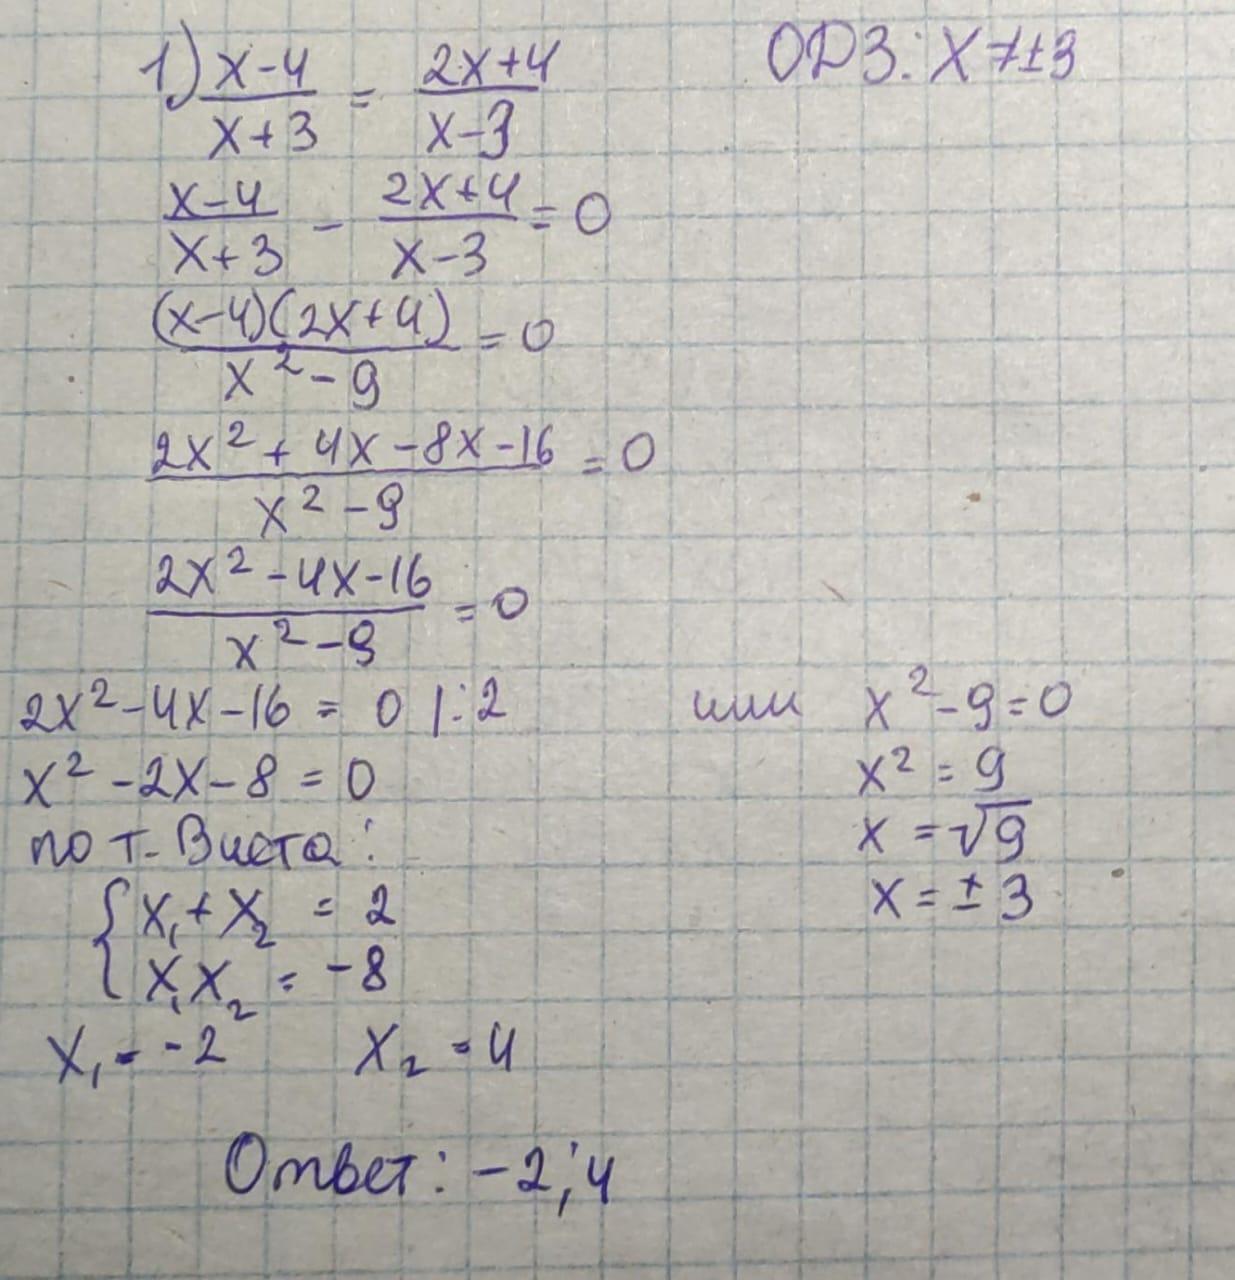 1) (x-4)/(x+3) = (2x+4)/(x-3)
ОДЗ: x ≠ ±3
(x-4)/(x+3) - (2x+4)/(x-3) = 0
((x-4)(2x+4))/(x²-9) = 0
(2x²+4x-8x-16)/(x²-9) = 0
(2x²-4x-16)/(x²-9) = 0
2x²-4x-16 = 0 |:2 или x²-9=0
x²-2x-8=0 x²=9
по т. Виета: x=√9
{ x₁+x₂ = 2 x=±3
{ x₁x₂ = -8
x₁=-2 x₂=4
Ответ: -2; 4